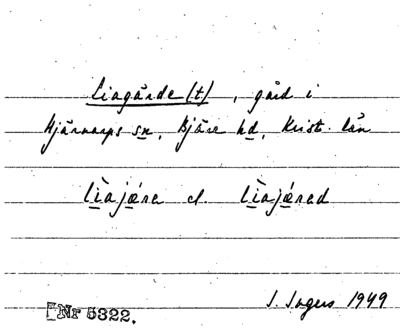 Liagärde(t), gård i
Hjärnarps sn, Bjäre hd, Krist. län
lìajǽra el. lìajǽrad
J. Ingers 1949
Nr 5322.